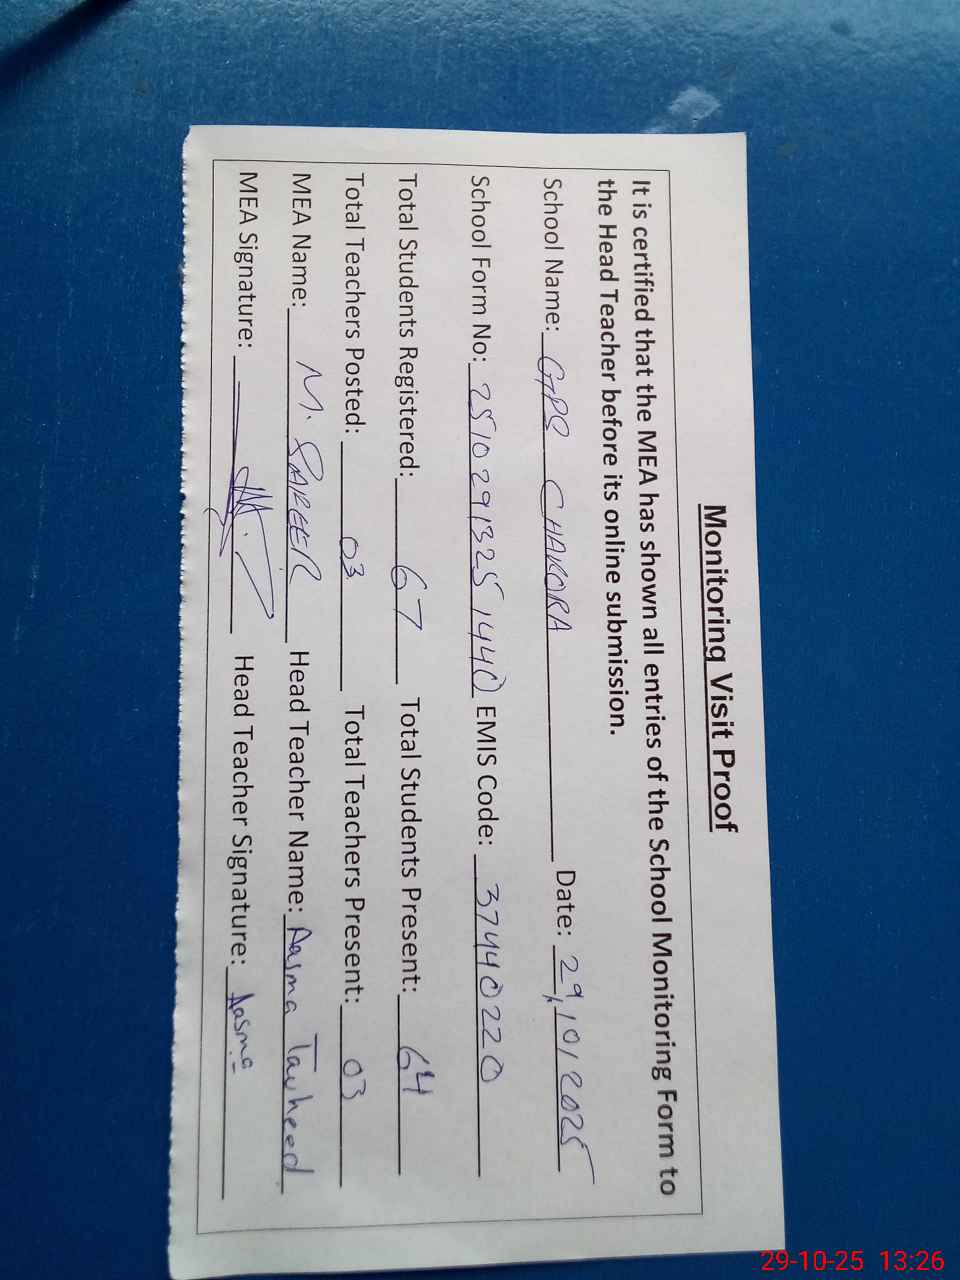 Monitoring Visit Proof
It is certified that the MEA has shown all entries of the School Monitoring Form to
the Head Teacher before its online submission.
School Name: GPS CHAKORA Date: 29/10/2025
School Form No: 25102913251440 EMIS Code: 37440220
Total Students Registered: 67 Total Students Present: 64
Total Teachers Posted: 03 Total Teachers Present: 03
MEA Name: M. Head Teacher Name: Aasma Tauheed
MEA Signature: Head Teacher Signature: Aasma
29-10-25 13:26